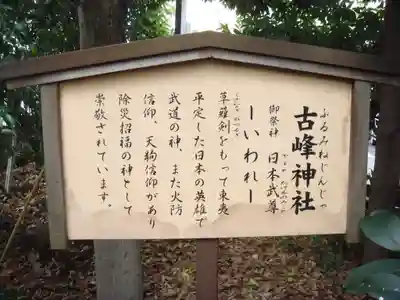 ふるみねじんじゃ
古峰神社
御祭神 日本武尊
ーいわれー
草薙剣をもって東夷
平定した日本の英雄で
武道の神、また火防
信仰、天狗信仰があり
除災招福の神として
崇敬されています。